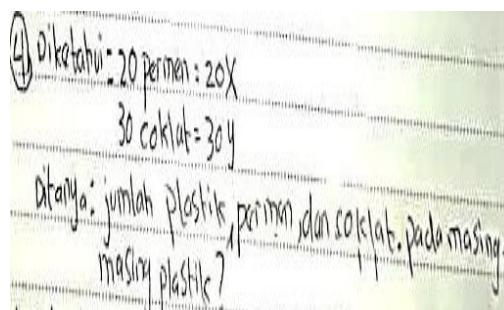 ④ Diketahui: 20 permen: 20x
30 coklat = 30y
Ditanya: jumlah plastik, permen, dan coklat. pada masing-
masing plastik?